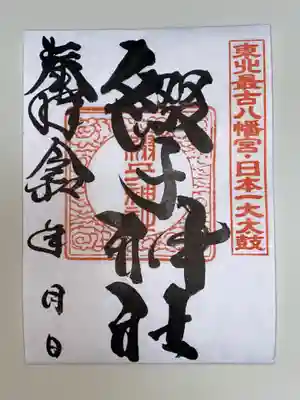 東北最古八幡宮・日本一大太鼓
綴子神社
奉拝
年月日